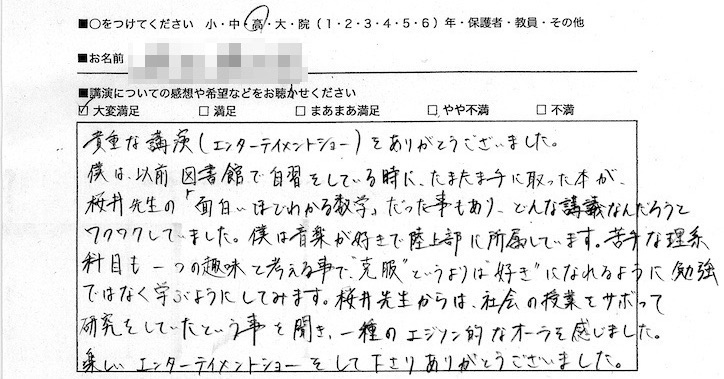 ■○をつけてください 小・中・高・大・院（1・2・3・4・5・6）年・保護者・教員・その他
■お名前
■講演についての感想や希望などをお聴かせください
☑大変満足 □満足 □まあまあ満足 □やや不満 □不満
貴重な講演（エンターテイメントショー）をありがとうございました。
僕は、以前 図書館で自習をしている時に、たまたま手に取った本が、
桜井先生の「面白いほどわかる数学」だった事もあり、どんな講義なんだろうと
ワクワクしていました。僕は音楽が好きで陸上部に所属しています。苦手な理系
科目も一つの趣味と考える事で"克服"というよりは"好き"になれるように勉強
ではなく学ぶようにしてみます。桜井先生からは、社会の授業をサボって
研究をしていたという事を聞き、一種のエジソン的なオーラを感じました。
楽しいエンターテイメントショーをして下さりありがとうございました。